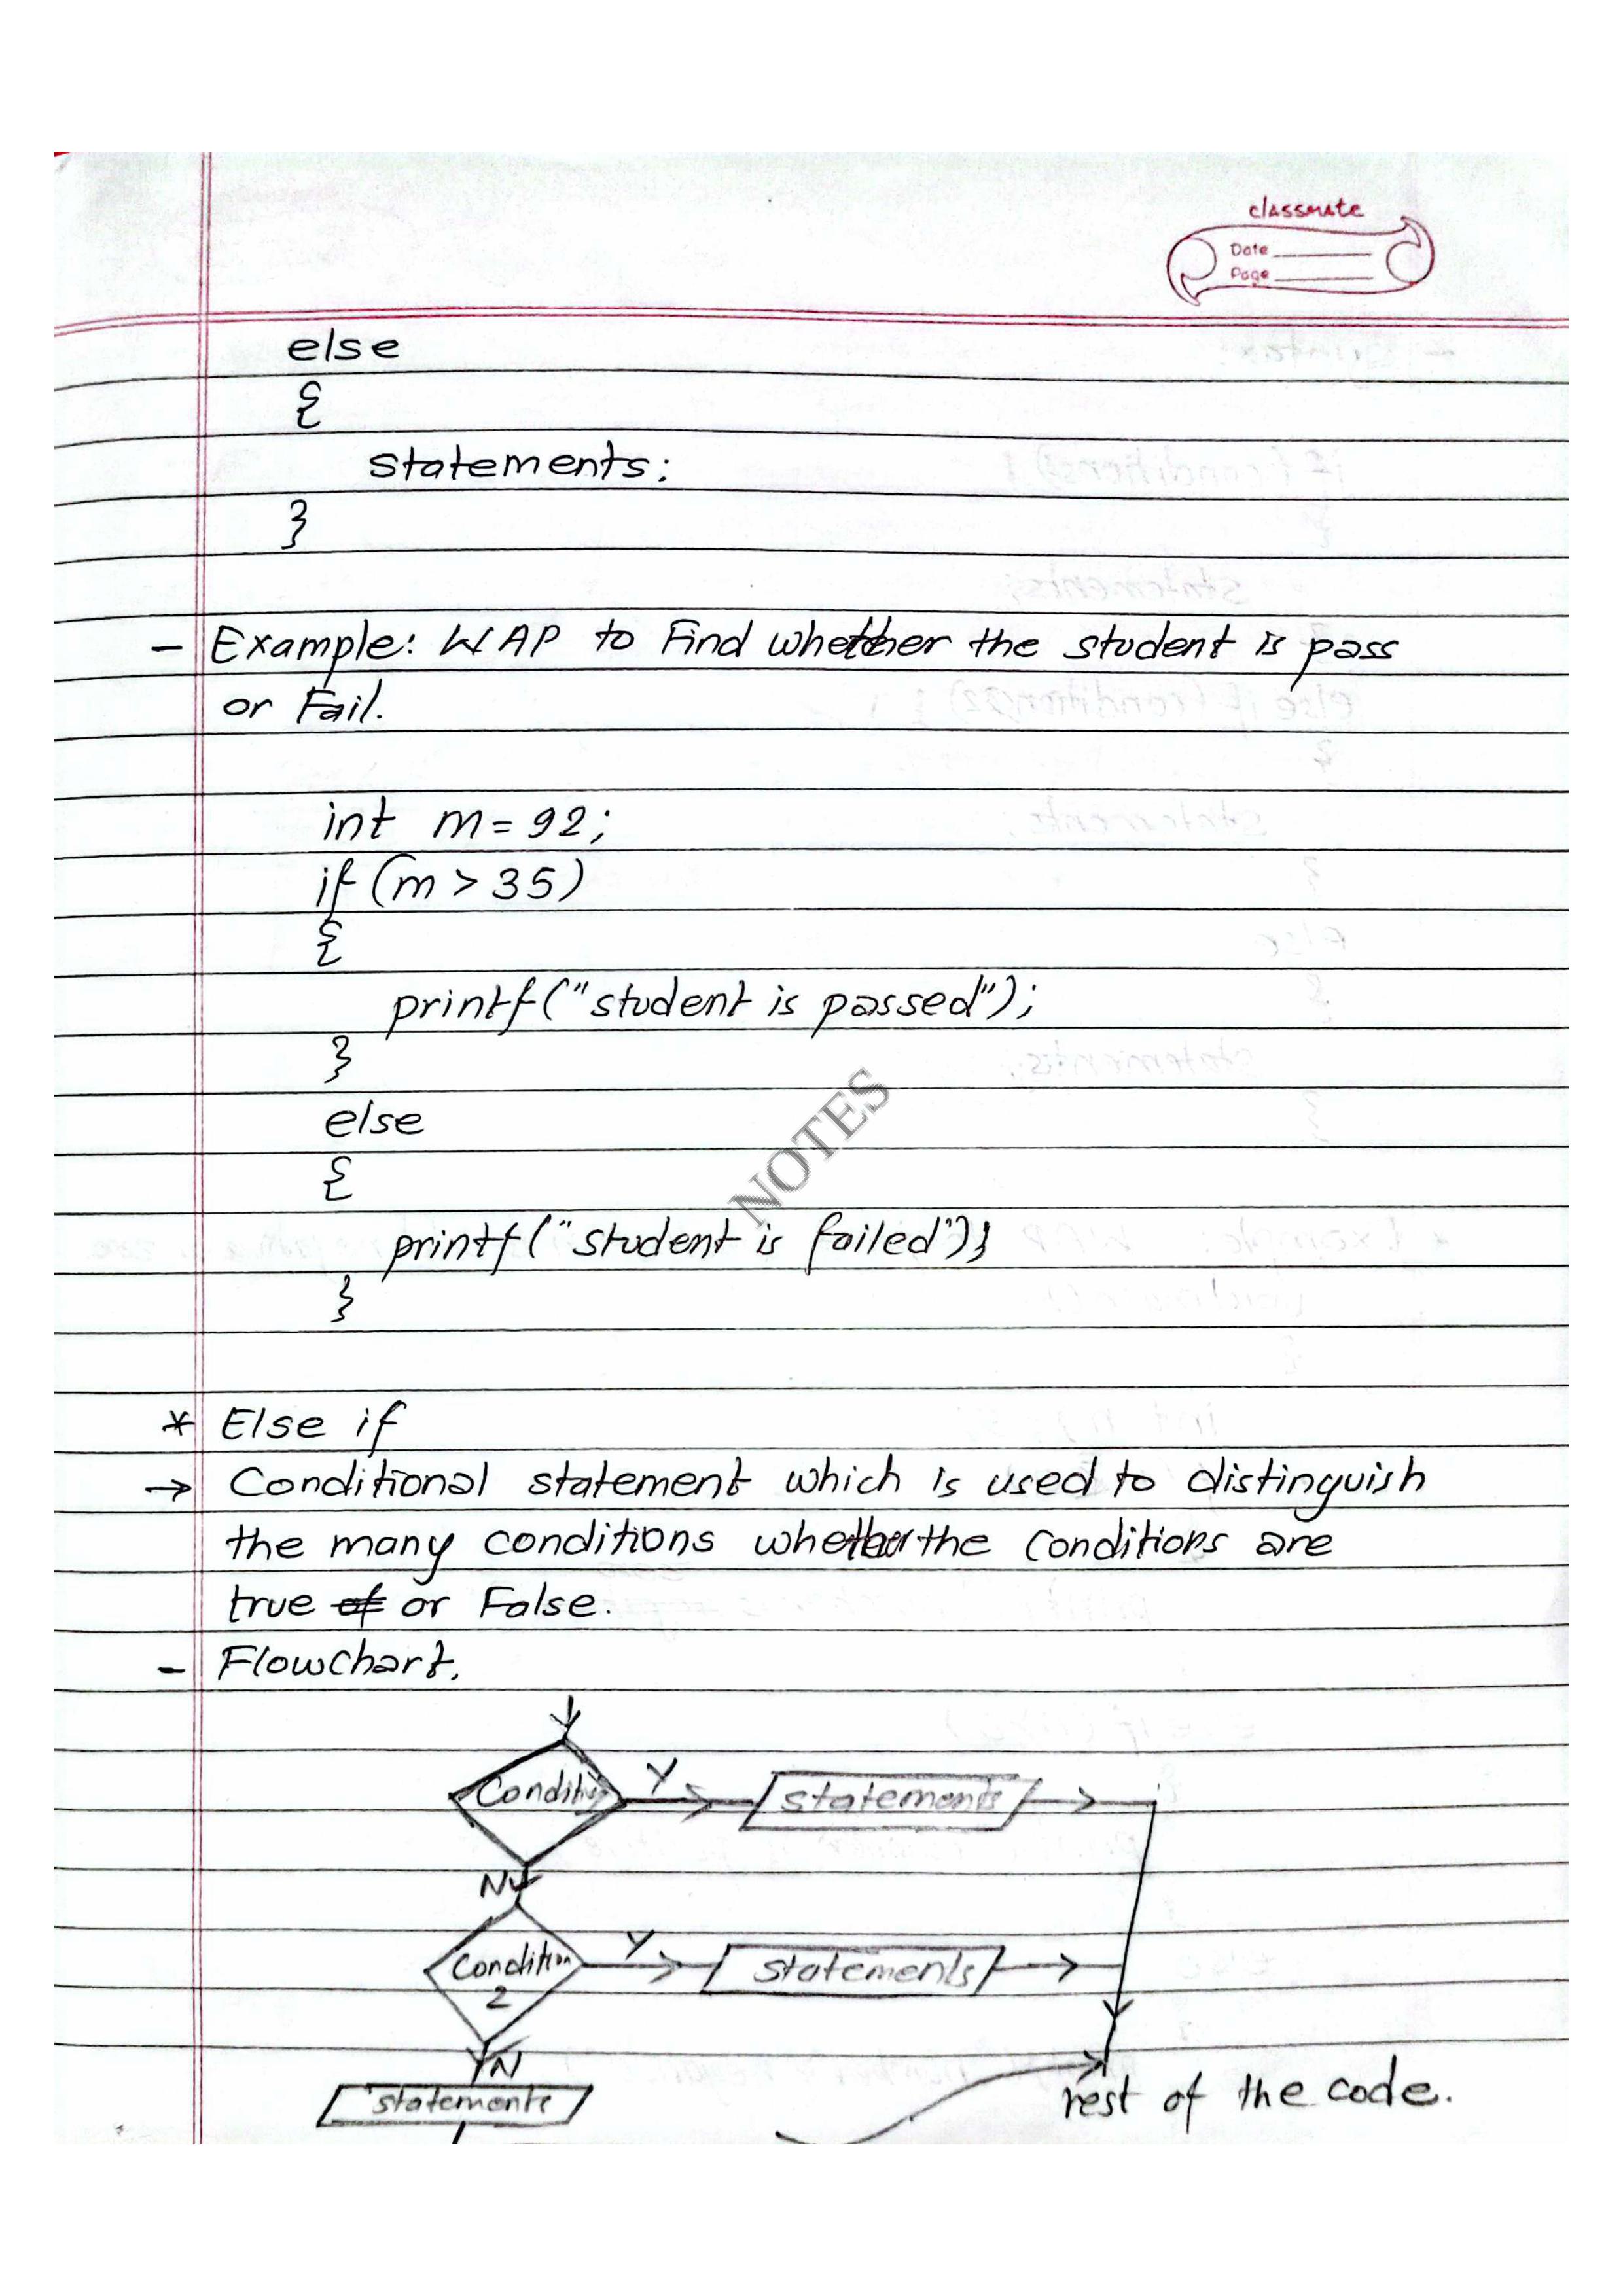 classmate
Date
Page
else
{
statements;
}
- Example: WAP to Find whether the student is pass
or Fail.
int m = 92;
if (m > 35)
{
printf("student is passed");
}
else
{
printf("student is failed");
}
NOTES
* Else if
→ Conditional statement which is used to distinguish
the many conditions whether the conditions are
true of or False.
- Flowchart.
Condition Y statements
N
Condition Y statements
2
N
statements
rest of the code.